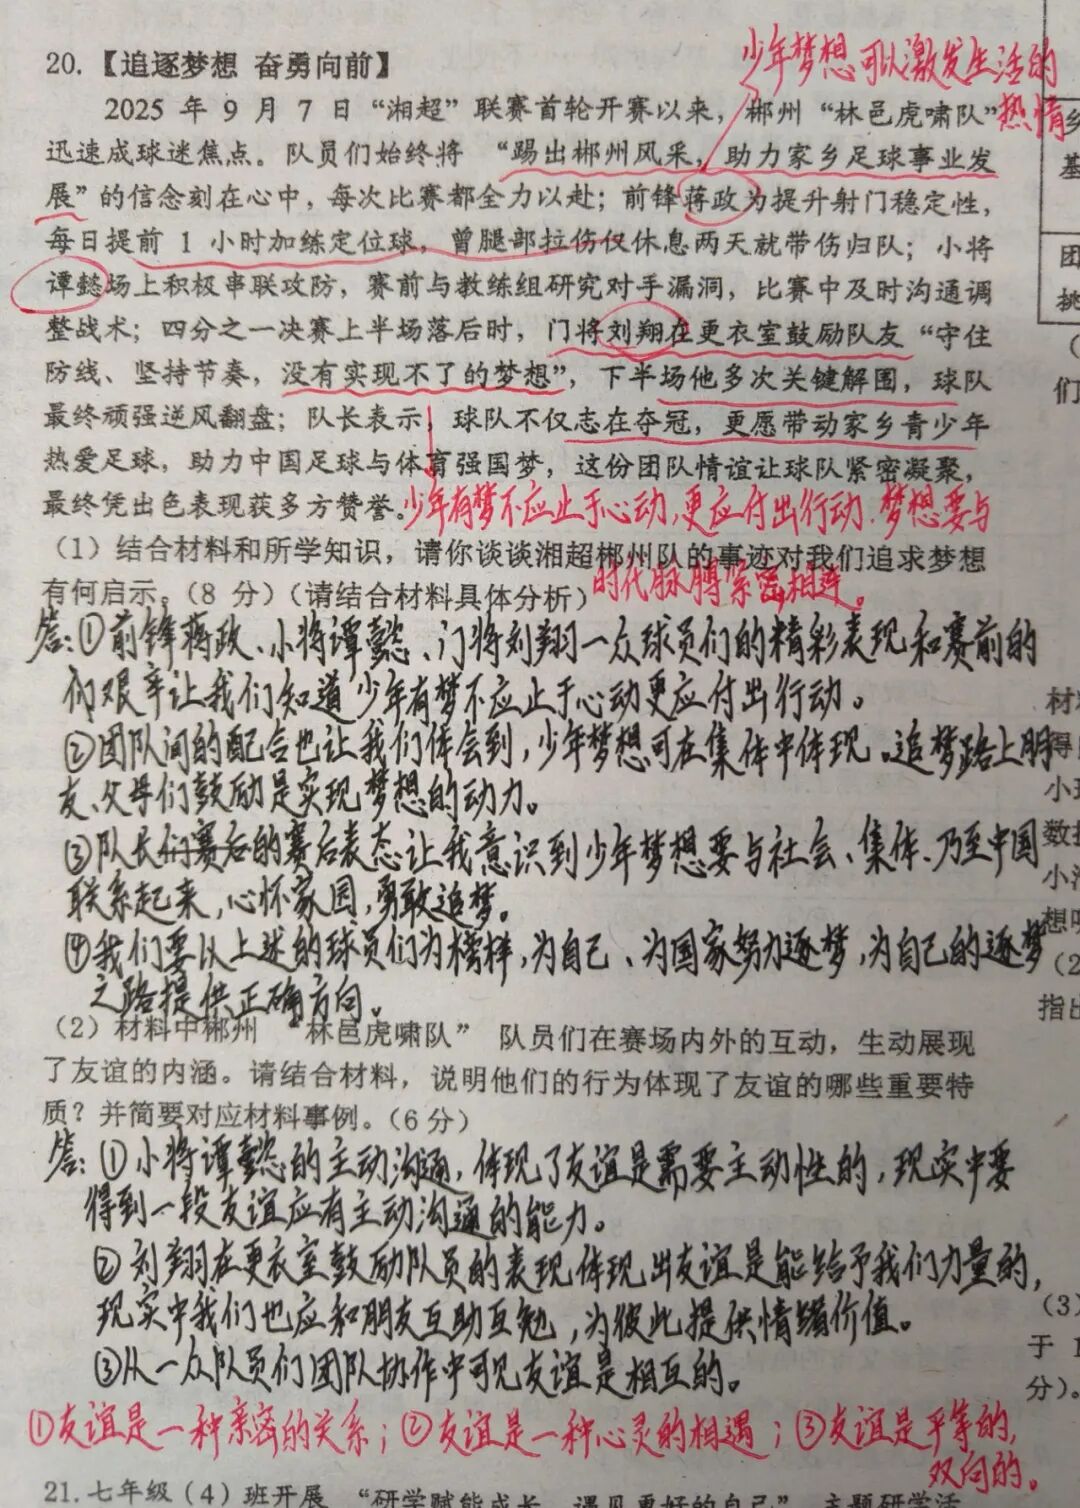 20.【追逐梦想 奋勇向前】
少年梦想可以激发生活的
热情
2025 年 9 月 7 日“湘超”联赛首轮开赛以来，郴州“林邑虎啸队”
迅速成球迷焦点。队员们始终将 “踢出郴州风采，助力家乡足球事业发
展”的信念刻在心中，每次比赛都全力以赴；前锋蒋政为提升射门稳定性，
每日提前 1 小时加练定位球，曾腿部拉伤仅休息两天就带伤归队；小将
谭懿场上积极串联攻防，赛前与教练组研究对手漏洞，比赛中及时沟通调
整战术；四分之一决赛上半场落后时，门将刘翔在更衣室鼓励队友“守住
防线、坚持节奏，没有实现不了的梦想”，下半场他多次关键解围，球队
最终顽强逆风翻盘；队长表示，球队不仅志在夺冠，更愿带动家乡青少年
热爱足球，助力中国足球与体育强国梦，这份团队情谊让球队紧密凝聚，
最终凭出色表现获多方赞誉。
少年有梦不应止于心动,更应付出行动.梦想要与
时代脉膊紧密相连。
（1）结合材料和所学知识，请你谈谈湘超郴州队的事迹对我们追求梦想
有何启示。（8 分）（请结合材料具体分析）
答:①前锋蒋政、小将谭懿、门将刘翔一众球员们的精彩表现和赛前的
艰辛让我们知道少年有梦不应止于心动更应付出行动。
②团队间的配合也让我们体会到,少年梦想可在集体中体现。追梦路上朋
友、父母们鼓励是实现梦想的动力。
③队长们赛后的赛后表态让我意识到少年梦想要与社会、集体、乃至中国
联系起来,心怀家国,勇敢追梦。
④我们要以上述的球员们为榜样,为自己、为国家努力逐梦,为自己的逐梦
之路提供正确方向。
（2）材料中郴州 “林邑虎啸队” 队员们在赛场内外的互动，生动展现
了友谊的内涵。请结合材料，说明他们的行为体现了友谊的哪些重要特
质？并简要对应材料事例。（6 分）
答:①小将谭懿的主动沟通,体现了友谊是需要主动性的,现实中要
得到一段友谊应有主动沟通的能力。
②刘翔在更衣室鼓励队员的表现体现出友谊是能给予我们力量的,
现实中我们也应和朋友互助互勉,为彼此提供情绪价值。
③从一众队员们团队协作中可见友谊是相互的。
①友谊是一种亲密的关系;②友谊是一种心灵的相遇;③友谊是平等的,
双向的。
21.七年级（4）班开展 “研学赋能成长，遇见更好的自己” 主题研学活
乡
基
团
挑
（
们
材
得
小
数
小
想
（2
指出
（3）
于
分）。